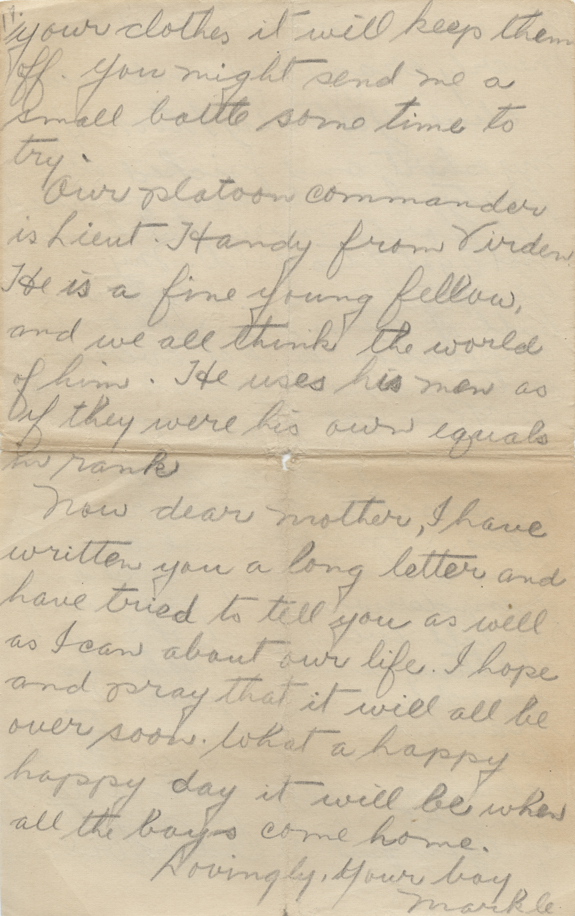 11.
your clothes it will keep them
off. You might send me a
small bottle some time to
try.
Our platoon commander
is Lieut. Handy from Virden.
He is a fine young fellow,
and we all think the world
of him. He uses his men as
if they were his own equals
in rank
Now dear mother, I have
written you a long letter and
have tried to tell you as well
as I can about our life. I hope
and pray that it will all be
over soon. What a happy
happy day it will be when
all the boys come home.
Lovingly, Your boy
Markle